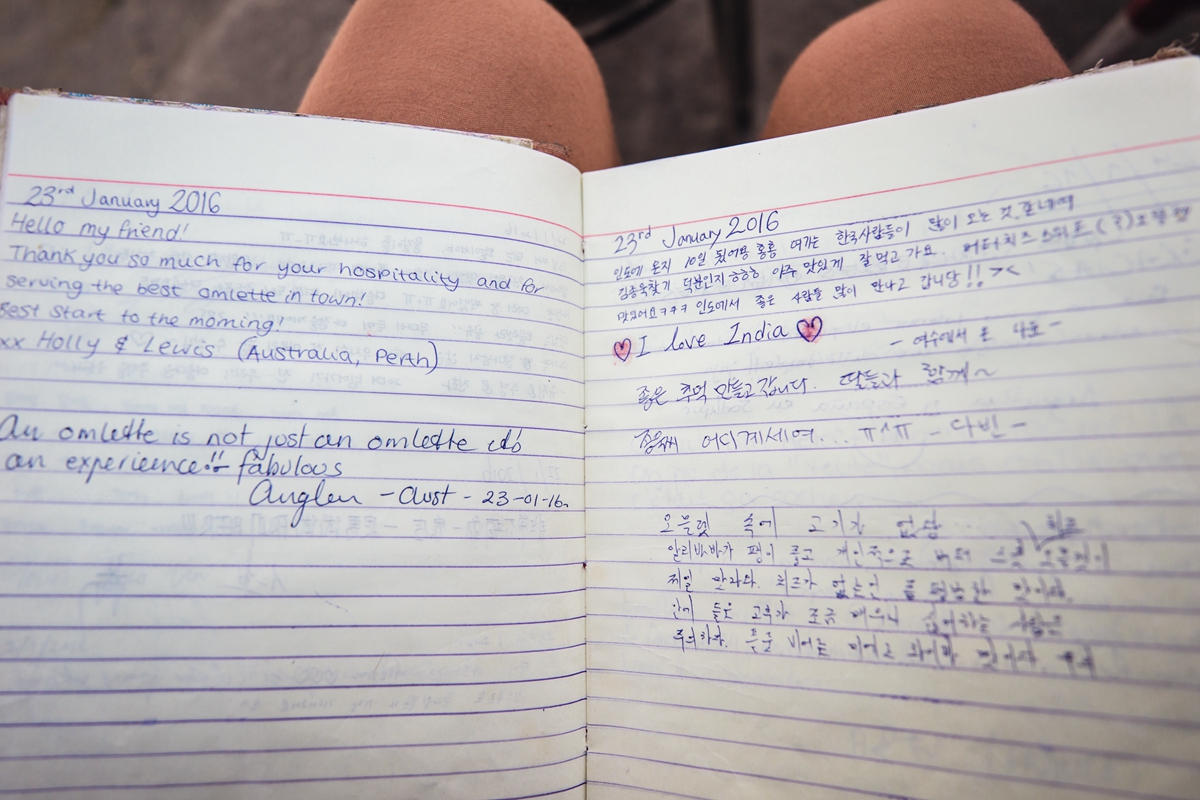 23rd January 2016
Hello my friend!
Thank you so much for your hospitality and for
serving the best omlette in town!
Best start to the morning!
xx Holly & Lewis (Australia, Perth)
An omlette is not just an omlette
an experience!! fabulous
- Aust - 23-01-16.
23rd January 2016
인도에 온지 10일 됬어용 홍홍 여기는 한국사람들이 많이 오는 것 같네여
김종욱찾기 덕분인지 하하하 아주 맛있게 잘 먹고 가요. 버터치즈스위트(?)오믈렛
맛있어요ㅋㅋㅋ 인도에서 좋은 사람들 많이 만나고 갑니당!! ><
I love India
- 여수에서 온 -
좋은 추억 만들고 갑니다. 딸들과 함께~
종욱씨 어디계세여... ㅠ^ㅠ - 다빈 -
오믈렛 속에 고기가 없삼
치즈
알리바바가 팽이 품고 개인적으로 버터 오믈렛이
제일 맛나다. 치즈가 없는건 맛이다.
안에 들은 고추가 조금 매우니 싫어하는 사람은
주의하자.